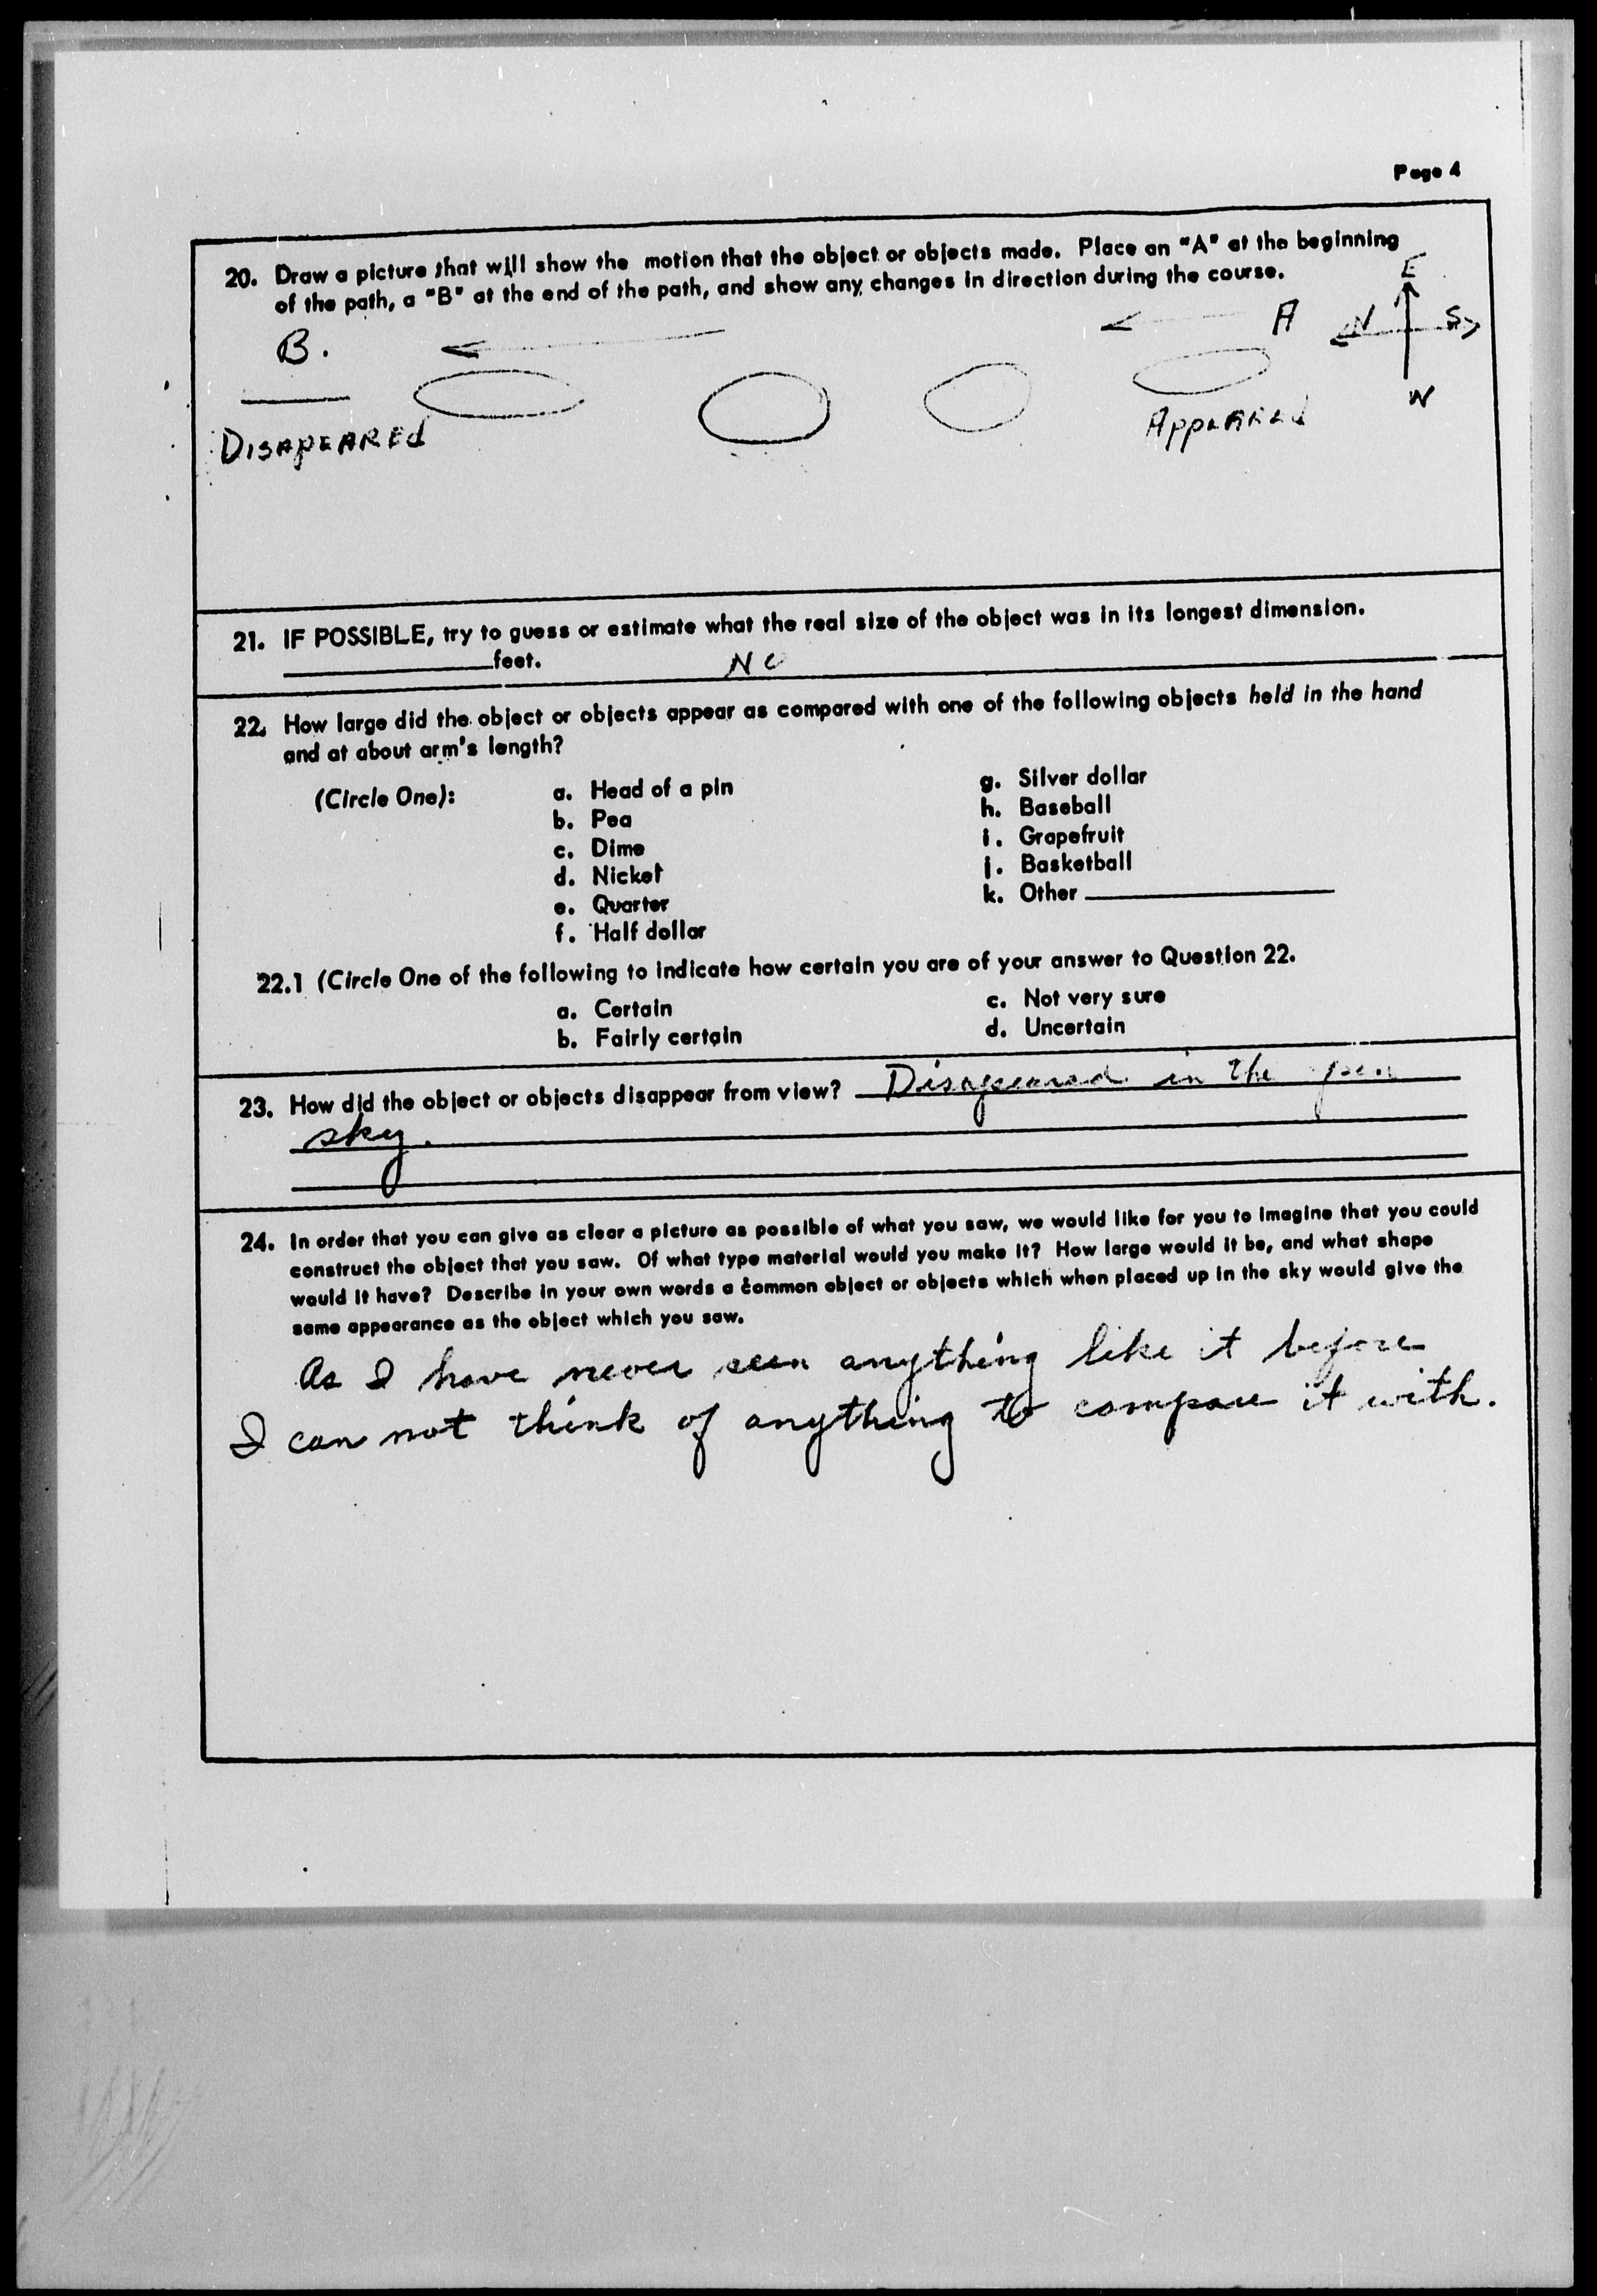 Page 4
20. Draw a picture that will show the motion that the object or objects made. Place an "A" at the beginning
of the path, a "B" at the end of the path, and show any changes in direction during the course.
E
B. A N S
W
DISAPEARED APPEARED
21. IF POSSIBLE, try to guess or estimate what the real size of the object was in its longest dimension.
feet. NO
22. How large did the object or objects appear as compared with one of the following objects held in the hand
and at about arm's length?
(Circle One): a. Head of a pin g. Silver dollar
b. Pea h. Baseball
c. Dime i. Grapefruit
d. Nickel j. Basketball
e. Quarter k. Other
f. Half dollar
22.1 (Circle One of the following to indicate how certain you are of your answer to Question 22.
a. Certain c. Not very sure
b. Fairly certain d. Uncertain
23. How did the object or objects disappear from view? Disapeared in the open
sky.
24. In order that you can give as clear a picture as possible of what you saw, we would like for you to imagine that you could
construct the object that you saw. Of what type material would you make it? How large would it be, and what shape
would it have? Describe in your own words a common object or objects which when placed up in the sky would give the
same appearance as the object which you saw.
As I have never seen anything like it before
I can not think of anything to compare it with.